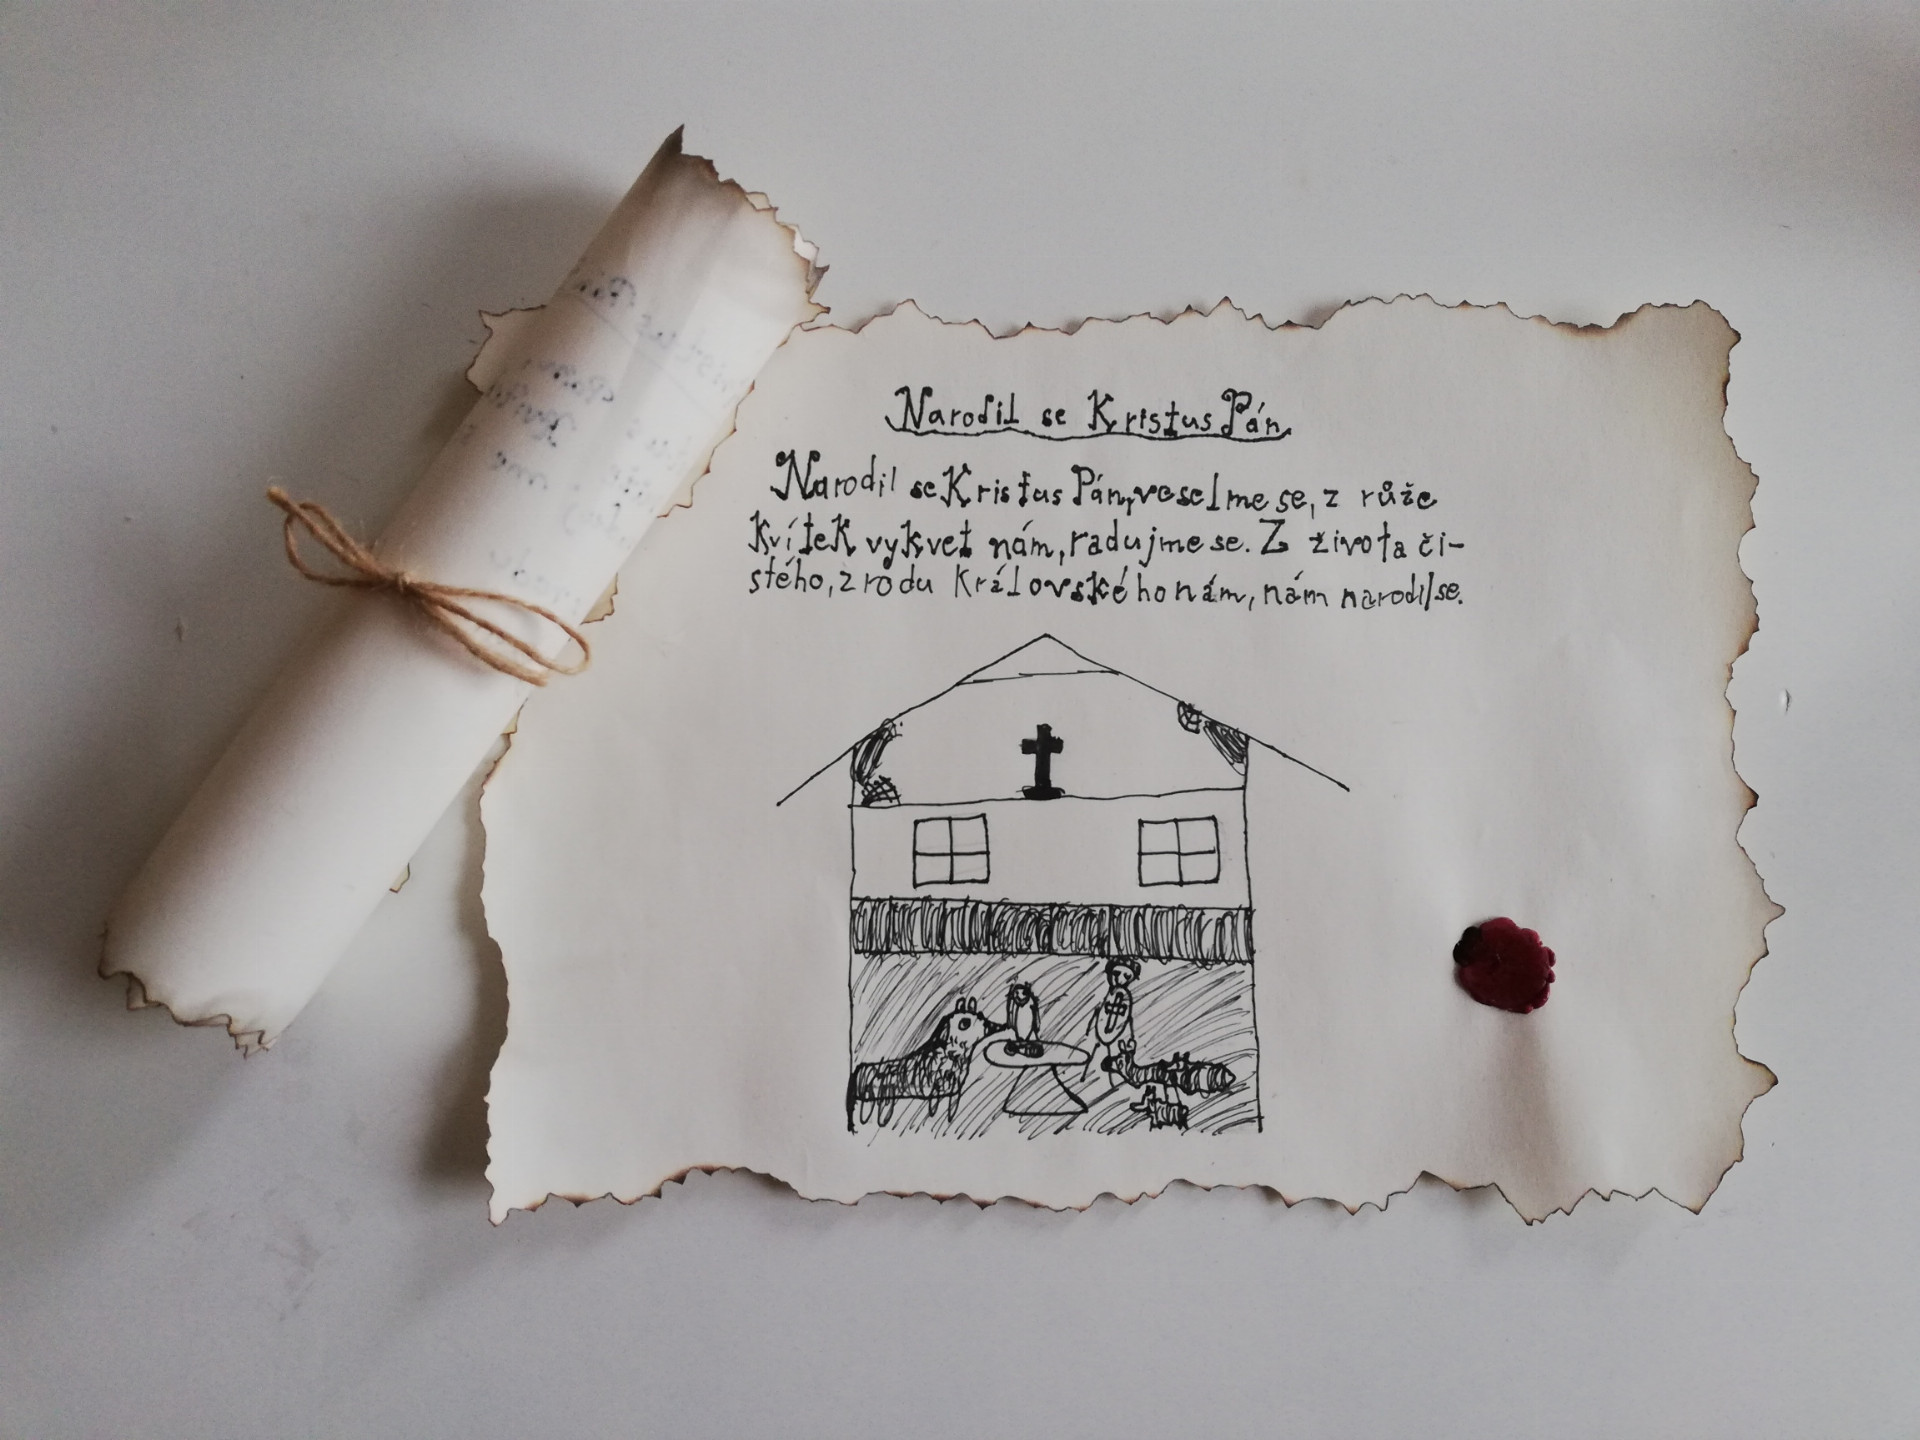 Narodil se Kristus Pán
Narodil se Kristus Pán, veselme se, z růže
kvítek vykvet nám, radujme se. Z života či-
stého, z rodu královského nám, nám narodil se.